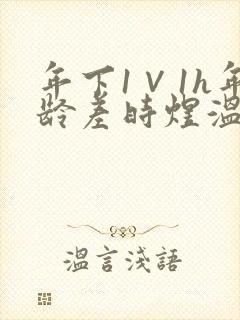 年下1V1h年
龄差时煜温
溫言淺語